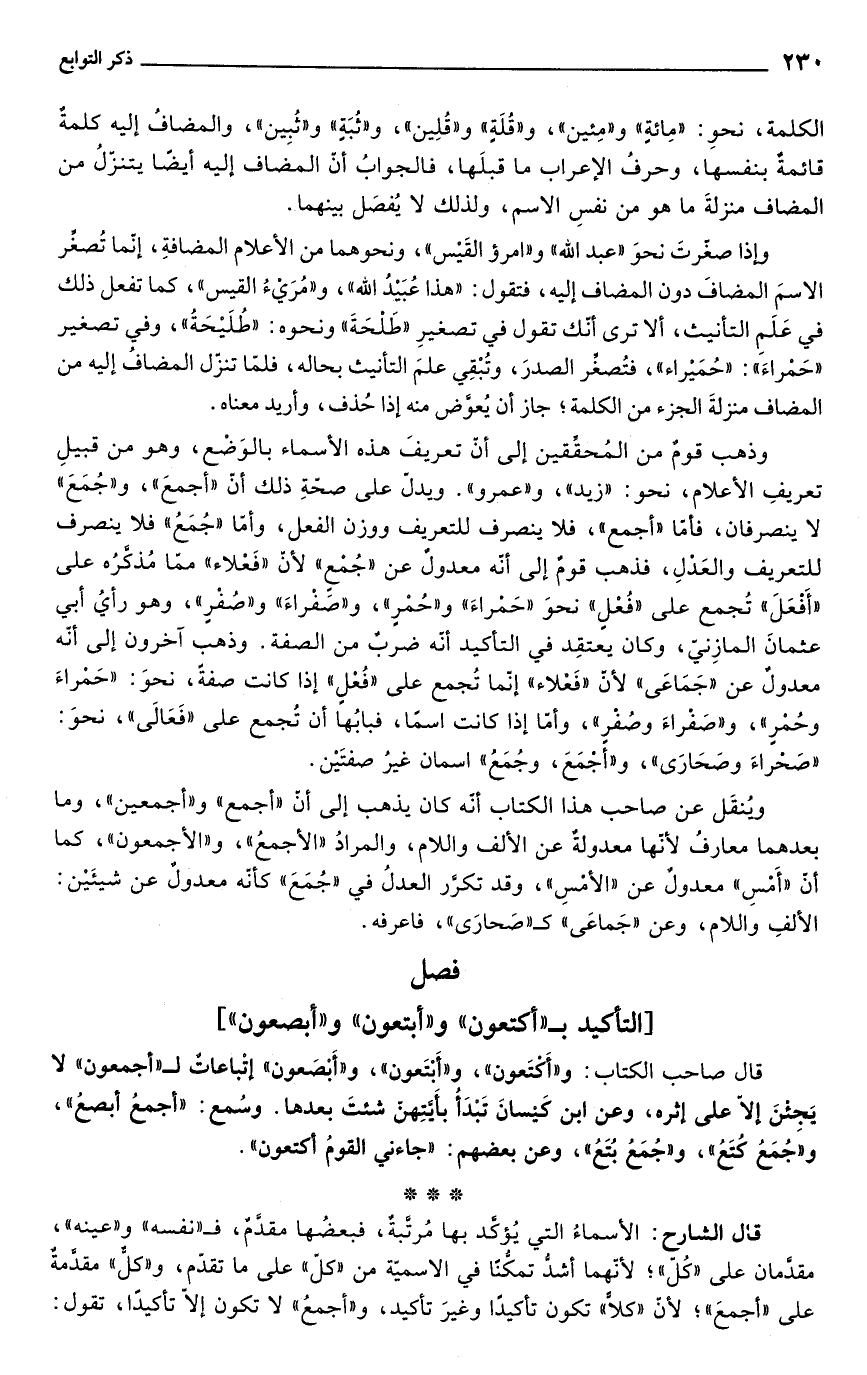 ٢٣٠ ذكر التوابع
الكلمة، نحوِ: «مِائةٍ» و«مِئين»، و«قُلَةٍ» و«قُلِين»، و«ثُبَةٍ» و«ثُبِين»، والمضافُ إليه كلمةٌ
قائمةٌ بنفسها، وحرفُ الإعراب ما قبلَها، فالجوابُ أنّ المضاف إليه أيضًا يتنزّلُ من
المضاف منزلةَ ما هو من نفسِ الاسم، ولذلك لا يُفصَل بينهما.
وإذا صغّرتَ نحوَ «عبد الله» و«امرؤ القَيْس»، ونحوهما من الأعلام المضافةِ، إنّما تُصغِّر
الاسمَ المضافَ دون المضاف إليه، فتقول: «هذا عُبَيْدُ الله»، و«مُرَيْءُ القيس»، كما تفعل ذلك
في عَلَمِ التأنيث، ألا ترى أنّك تقول في تصغيرِ «طَلْحَةَ» ونحوه: «طُلَيْحَةُ»، وفي تصغير
«حَمْراءَ»: «حُمَيْراء»، فتُصغِّر الصدرَ، وتُبْقِي علمَ التأنيث بحاله، فلمّا تنزّل المضافُ إليه من
المضاف منزلةَ الجزء من الكلمة؛ جاز أن يُعوَّض منه إذا حُذف، وأريد معناه.
وذهب قومٌ من المُحقِّقين إلى أنّ تعريفَ هذه الأسماء بالوَضْع، وهو من قبيلِ
تعريفِ الأعلام، نحو: «زيد»، و«عمرو». ويدلّ على صحّةِ ذلك أنّ «أجمعَ»، و«جُمَعَ»
لا ينصرفان، فأمّا «أجمع»، فلا ينصرف للتعريف ووزن الفعل، وأمّا «جُمَعُ» فلا ينصرف
للتعريف والعَدْلِ، فذهب قومٌ إلى أنه معدولٌ عن «جُمْعٍ» لأنّ «فَعْلاء» ممّا مُذكَّرُه على
«أَفْعَلَ» تُجمع على «فُعْلٍ» نحوَ «حَمْراءَ» و«حُمْرٍ»، و«صِّفْراءَ» و«صُفْرٍ»، وهو رأيُ أبي
عثمانَ المازنيّ، وكان يعتقِد في التأكيد أنه ضربٌ من الصفة. وذهب آخرون إلى أنّه
معدولٌ عن «جَمَاعَى» لأنّ «فَعْلاء» إنّما تُجمع على «فُعْلٍ» إذا كانت صفةً، نحوَ: «حَمْراءَ
وحُمْرٍ»، و«صَفْراءَ وصُفْرٍ»، وأمّا إذا كانت اسمًا، فبابُها أن تُجمع على «فَعَالَى»، نحوَ:
«صَحْراءَ وصَحَارَى»، و«أَجْمَعَ، وجُمَعُ» اسمان غيرُ صفتَيْن.
ويُنقَل عن صاحب هذا الكتاب أنّه كان يذهب إلى أنّ «أجمع» و«أجمعين»، وما
بعدهما معارفُ لأنّها معدولةٌ عن الألف واللام، والمرادُ «الأجمعُ»، و«الأجمعون»، كما
أنّ «أَمْسِ» معدول عن «الأمْسِ»، وقد تكرّر العدلُ في «جُمَعَ» كأنّه معدولٌ عن شيئَيْن:
الألفِ واللام، وعن «جَماعَى» كـ«صَحارَى»، فاعرفه.
فصل
[التأكيد بـ«أكتعون» و«أبتعون» و«أبصعون»]
قال صاحب الكتاب: و«أَكْتَعون»، و«أَبْتَعون»، و«أَبْصَعون» إتْباعاتٌ لـ«أجمعون» لا
يَجِئْنَ إلاّ على إثره، وعن ابن كَيْسانَ تَبْدَأُ بأيَّتِهنّ شئتَ بعدها. وسُمع: «أجمعُ أبصعُ»،
و«جُمَعُ كُتَعُ»، و«جُمَعُ بُتَعُ»، وعن بعضهم: «جاءني القومُ أكتعون».
* * *
قال الشارح: الأسماءُ التي يُؤكَّد بها مُرتَّبةٌ، فبعضُها مقدَّمٌ، فـ«نفسه» و«عينه»،
مقدَّمان على «كُلّ»؛ لأنّهما أشدُّ تمكُّنًا في الاسميّة من «كلّ» على ما تقدّم، و«كلٌّ» مقدَّمةٌ
على «أجمعَ»؛ لأنّ «كلاًّ» تكون تأكيدًا وغيرَ تأكيد، و«أجمعُ» لا تكون إلاّ تأكيدًا، تقول: